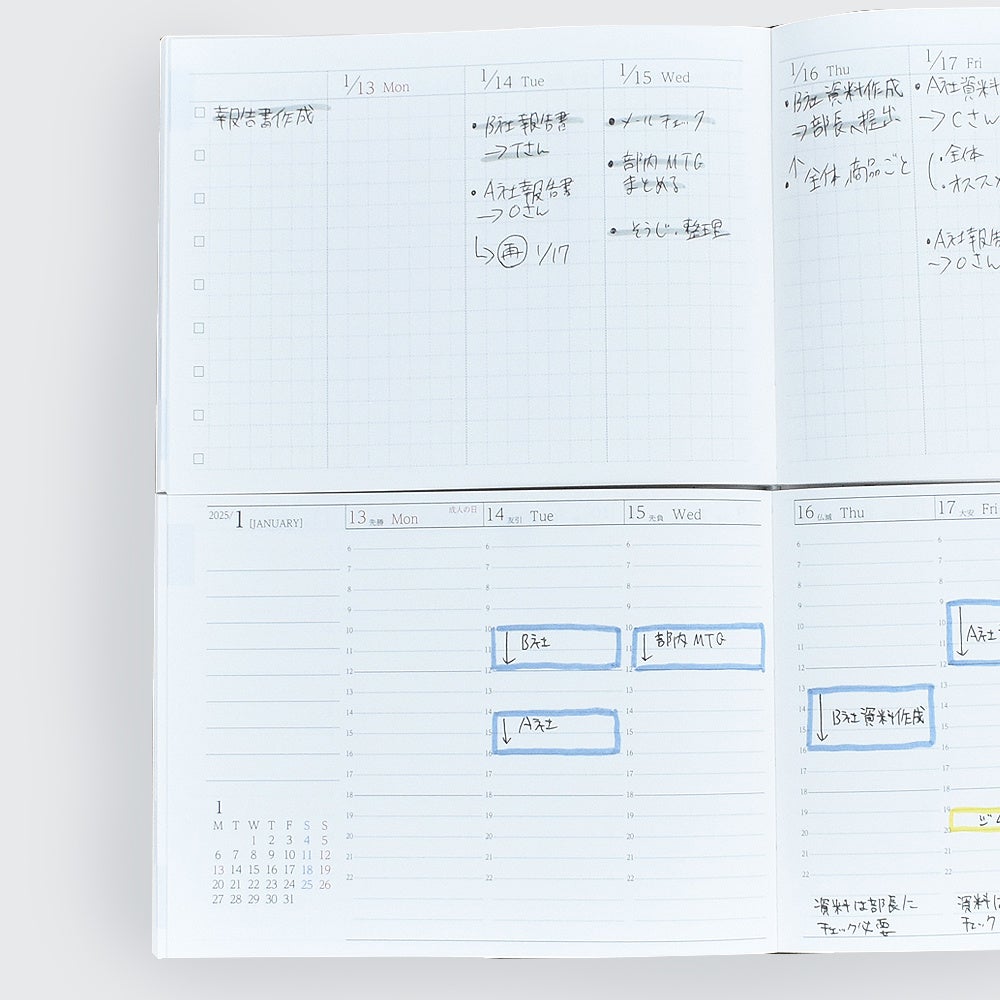 1/13 Mon
1/14 Tue
1/15 Wed
1/16 Thu
1/17 Fri
報告書作成
• B社 報告書
→Tさん
• A社報告書
→Oさん
↳再 1/17
• メールチェック
• 部内 MTG
まとめる
• そうじ、整理
• B社 資料作成
→部長へ提出
↑
• 全体、商品ごと
• A社資料
→Cさん
• 全体
• オススメ
• A社報告
→Oさん
2025/1 [JANUARY]
13 先勝 Mon 成人の日
14 友引 Tue
15 先負 Wed
16 仏滅 Thu
17 大安 Fri
6
7
8
9
10
11
12
13
14
15
16
17
18
19
20
21
22
↓ B社
↓ A社
↓ 部内 MTG
↓ B社資料作成
↓ A社
ジム
資料は部長に
チェック必要
資料は
チェック
1
M T W T F S S
1 2 3 4 5
6 7 8 9 10 11 12
13 14 15 16 17 18 19
20 21 22 23 24 25 26
27 28 29 30 31